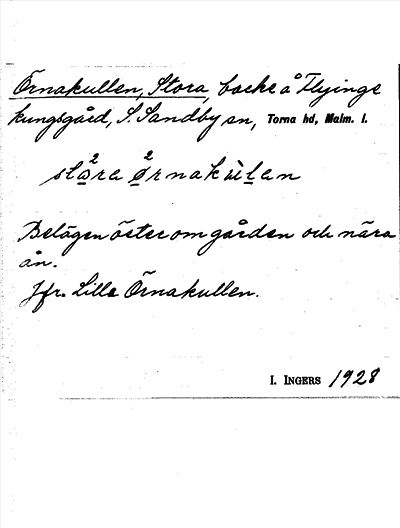 Örnakullen, Stora, backe å Flyinge
kungsgård, S. Sandby sn, Torna hd, Malm. l.
stǫ²ra ø²rnakùlan
Belägen öster om gården och nära
ån.
Jfr. Lilla Örnakullen.
I. INGERS 1928